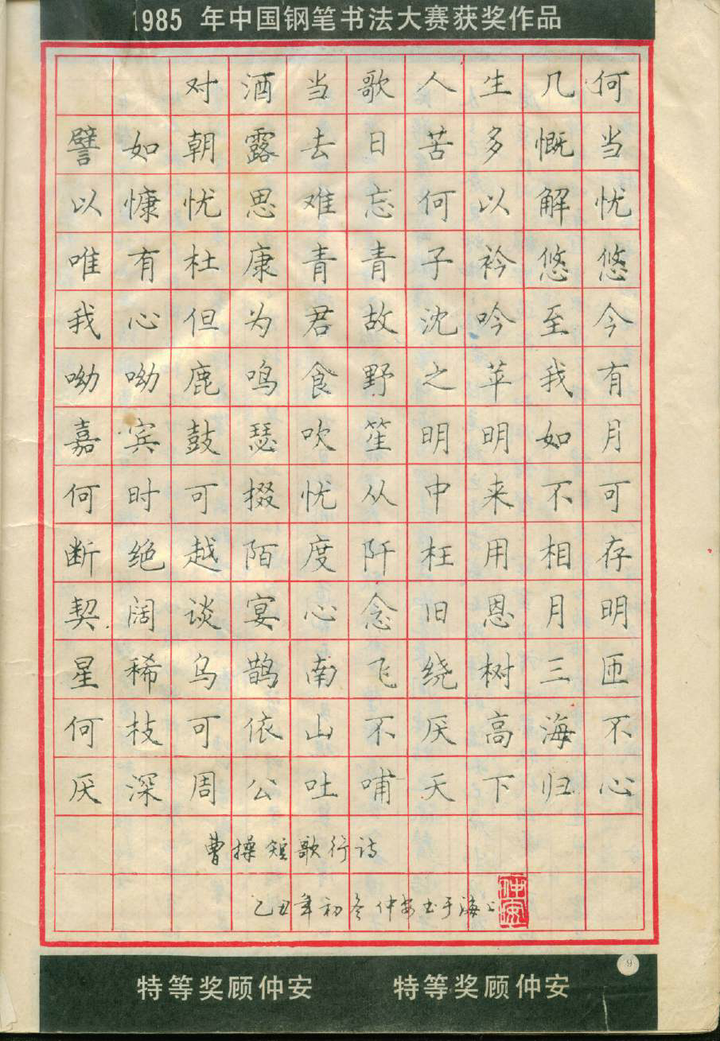 1985 年中国钢笔书法大赛获奖作品
对酒当歌人生几何
譬如朝露去日苦多慨当
以慷忧思难忘何以解忧
唯有杜康青青子衿悠悠
我心但为君故沈吟至今
呦呦鹿鸣食野之苹我有
嘉宾鼓瑟吹笙明明如月
何时可掇忧从中来不可
断绝越陌度阡枉用相存
契阔谈宴心念旧恩月明
星稀乌鹊南飞绕树三匝
何枝可依山不厌高海不
厌深周公吐哺天下归心
曹操短歌行诗
乙丑年初冬仲安书于海上
仲安
9
特等奖顾仲安 特等奖顾仲安